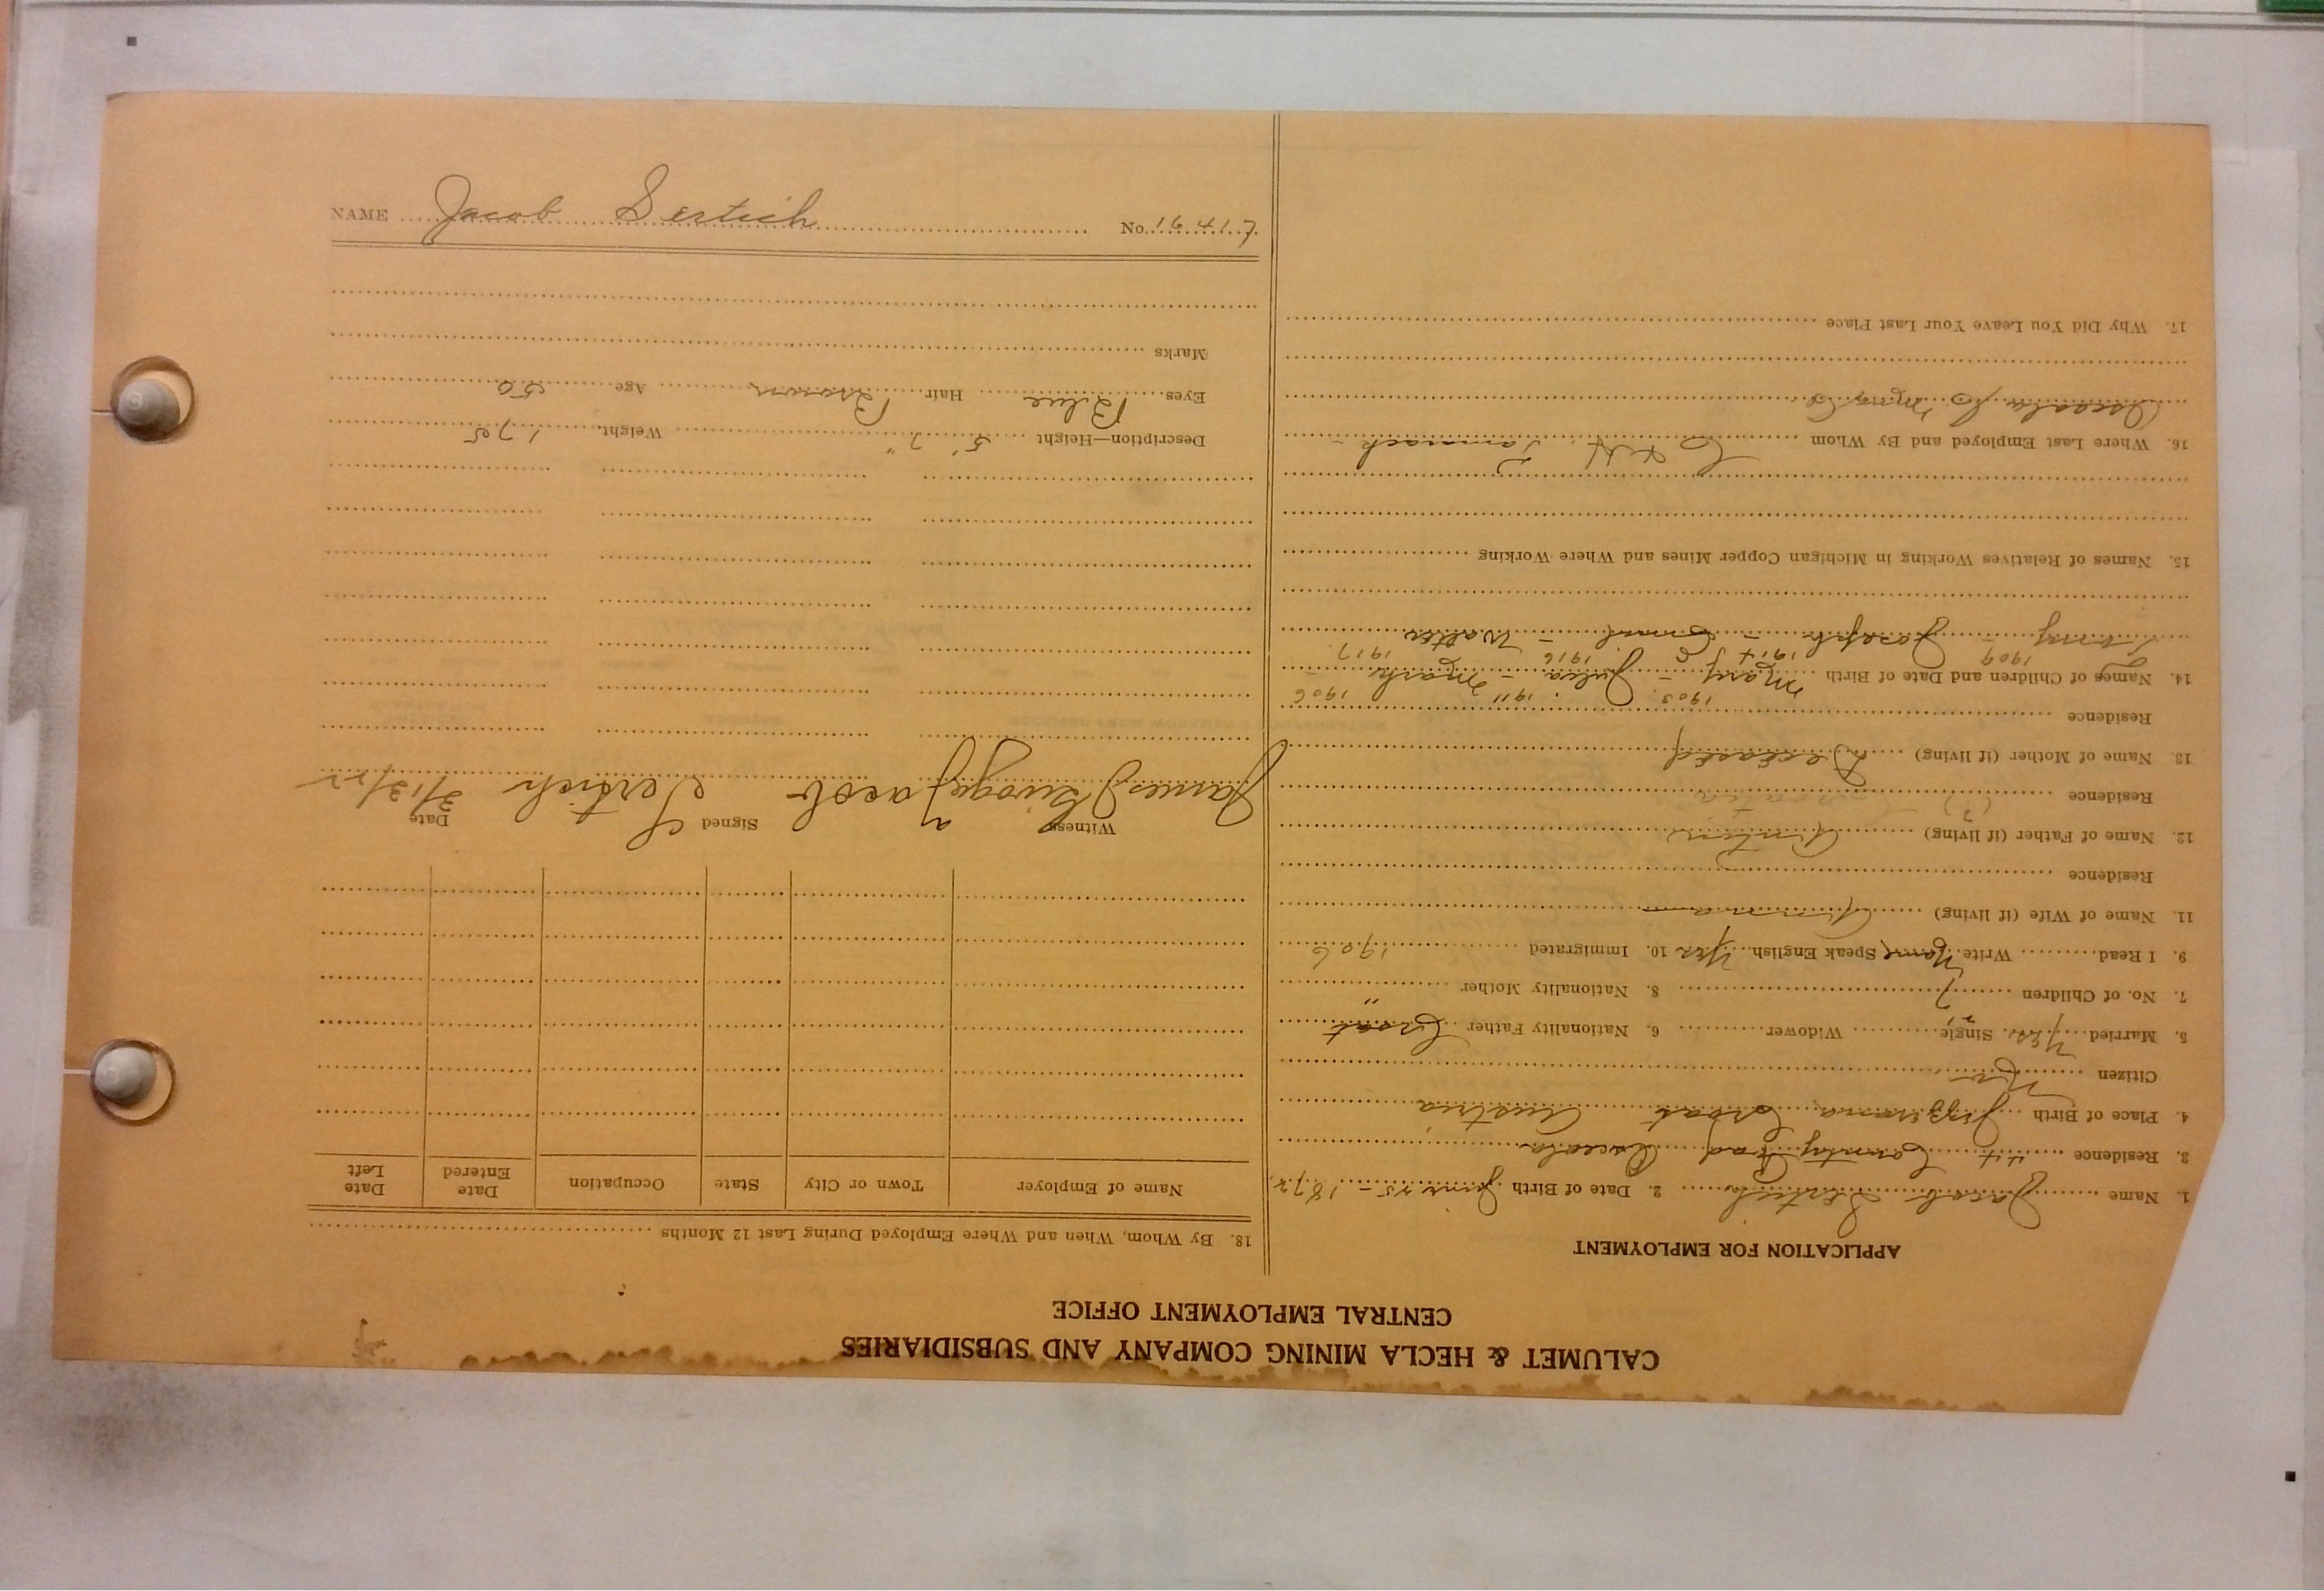 CALUMET & HECLA MINING COMPANY AND SUBSIDIARIES
CENTRAL EMPLOYMENT OFFICE
APPLICATION FOR EMPLOYMENT
1. Name Jacob Sertich 2. Date of Birth June 25 - 1872
3. Residence County Road Osceola
4. Place of Birth Croat Austria
Citizen No
5. Married Yes Single Widower 6. Nationality Father Croat
7. No. of Children 7 8. Nationality Mother "
9. I Read Write Name Speak English Yes 10. Immigrated 1906
11. Name of Wife (if living) Anna
Residence
12. Name of Father (if living) Antin
Residence (?) Croatia
13. Name of Mother (if living) Deceased
Residence
1903 1911 1906
14. Names of Children and Date of Birth Mary - Julia - Mark -
1909 1914 1916 1917
Joseph - Emil - Walter
15. Names of Relatives Working in Michigan Copper Mines and Where Working
16. Where Last Employed and By Whom C & H Tamarack -
Osceola Mng Co
17. Why Did You Leave Your Last Place
18. By Whom, When and Where Employed During Last 12 Months
Name of Employer Town or City State Occupation Date Entered Date Left
Witness Signed Date
James Jacob Sertich 3/13/22
Description—Height 5' 7" Weight 175
Eyes Blue Hair Brown Age 50
Marks
NAME Jacob Sertich No. 19417